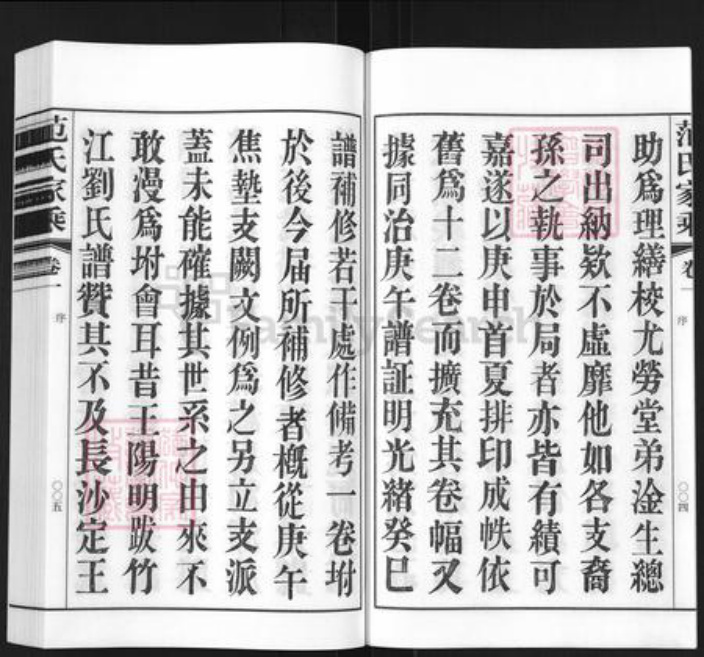 助爲理繕校尤勞堂弟淦生總
司出納欵不虛靡他如各支裔
孫之執事於局者亦皆有績可
嘉遂以庚申首夏排印成帙依
舊爲十二卷而擴充其卷幅又
據同治庚午譜証明光緒癸巳
范氏家乘 卷一 序 〇〇四
譜補修若干處作備考一卷坿
於後今届所補修者概從庚午
焦墊支闕文例爲之另立支派
蓋未能確據其世系之由來不
敢漫爲坿會耳昔王陽明跋竹
江劉氏譜贊其不及長沙定王
范氏家乘 卷一 序 〇〇五
FamilySearch